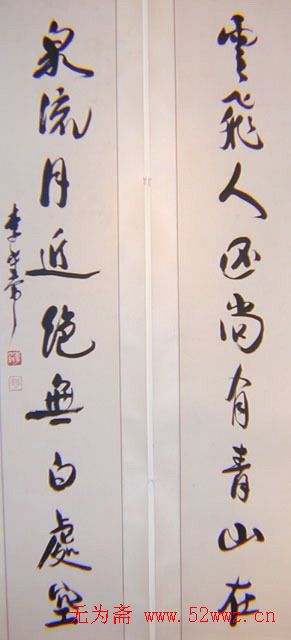 雲飛人尚有青山在
泉流月近絕無白處空
李
无为斋 www.52wwz.cn